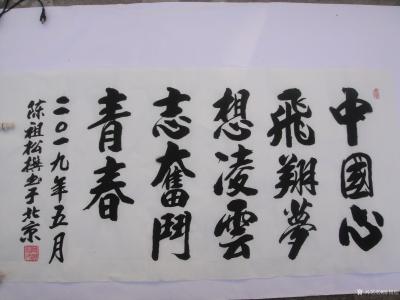 中國心
飛翔夢
想凌雲
志奮鬥
青春
二〇一九年五月
陈祖松撰书于北京